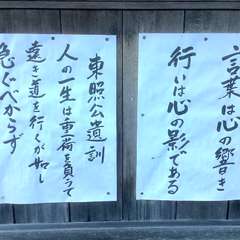 言葉は心の響き
行いは心の影である
東照公遺訓
人の一生は重荷を負うて
遠き道を行くが如し
急ぐべからず